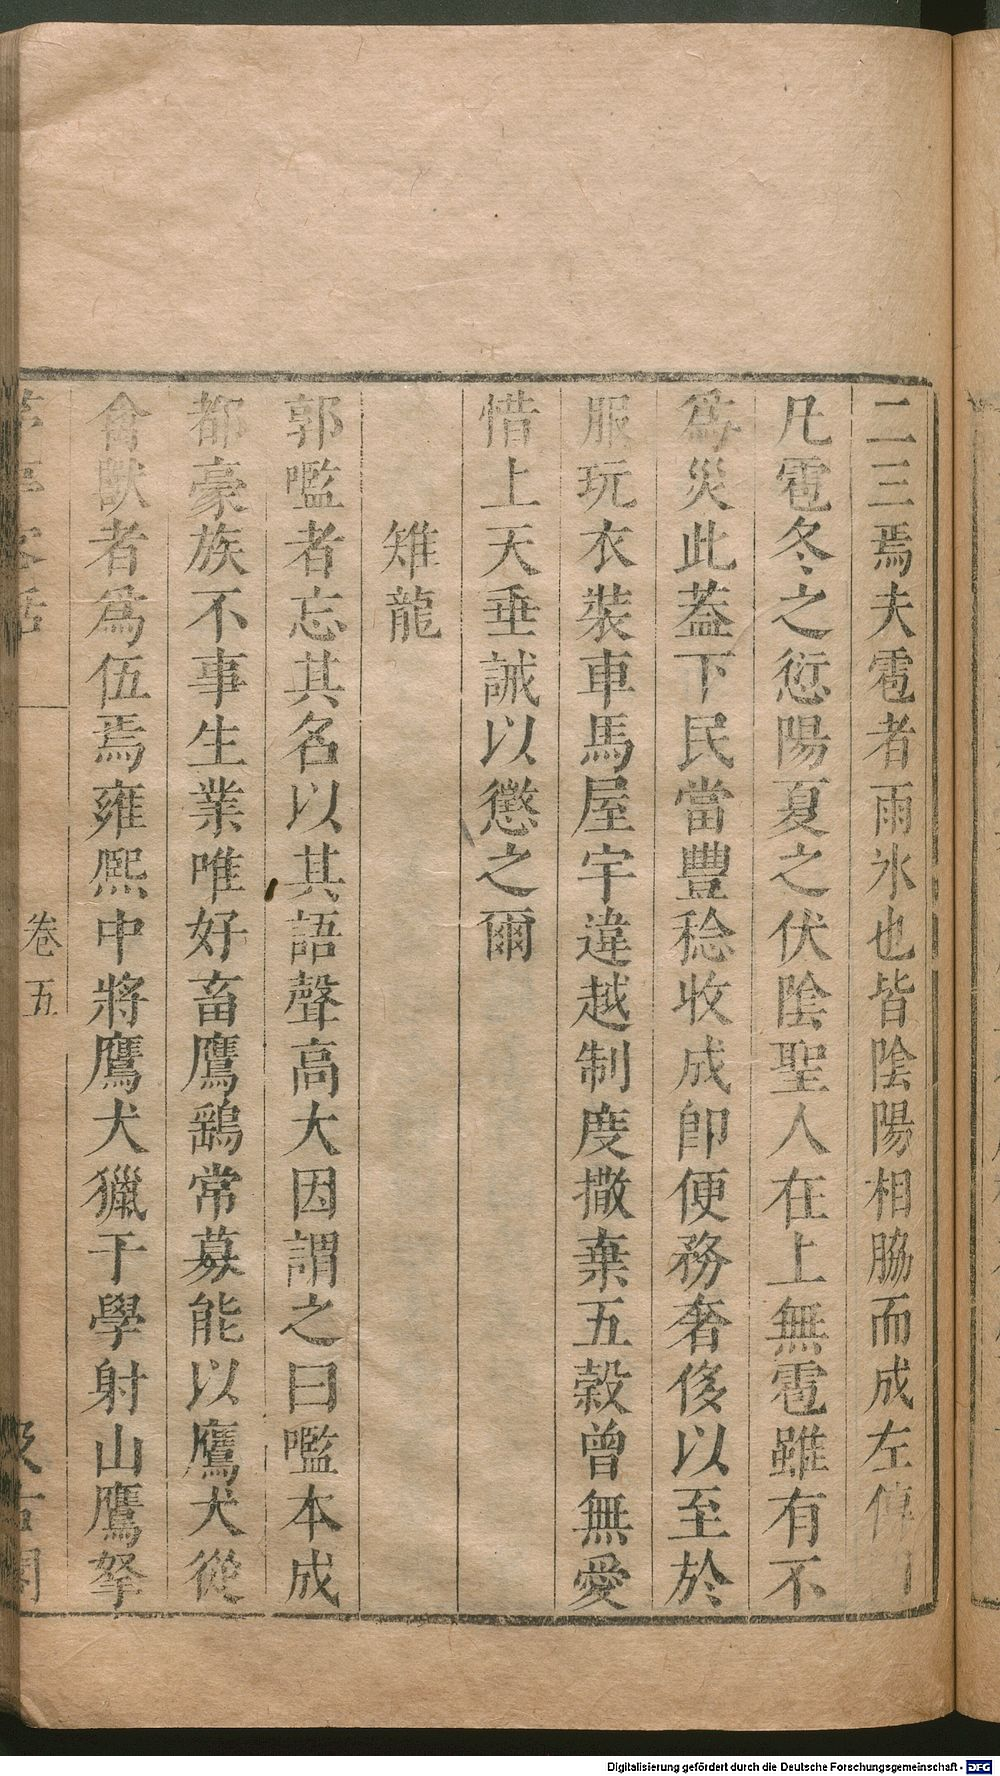 二三焉夫雹者雨氷也皆陰陽相脇而成左傳曰
凡雹冬之愆陽夏之伏陰聖人在上無雹雖有不
為災此蓋下民當豐稔收成即便務奢侈以至於
服玩衣裝車馬屋宇違越制度撒棄五穀曾無愛
惜上天垂誡以懲之爾
雉龍
郭㘕者忘其名以其語聲高大因謂之曰㘕本成
都豪族不事生業唯好畜鷹鷂常募能以鷹犬從
禽獸者爲伍焉雍熙中將鷹犬獵于學射山鷹拏
茅亭客話
卷五
汲古閣
Digitalisierung gefördert durch die Deutsche Forschungsgemeinschaft - DFG